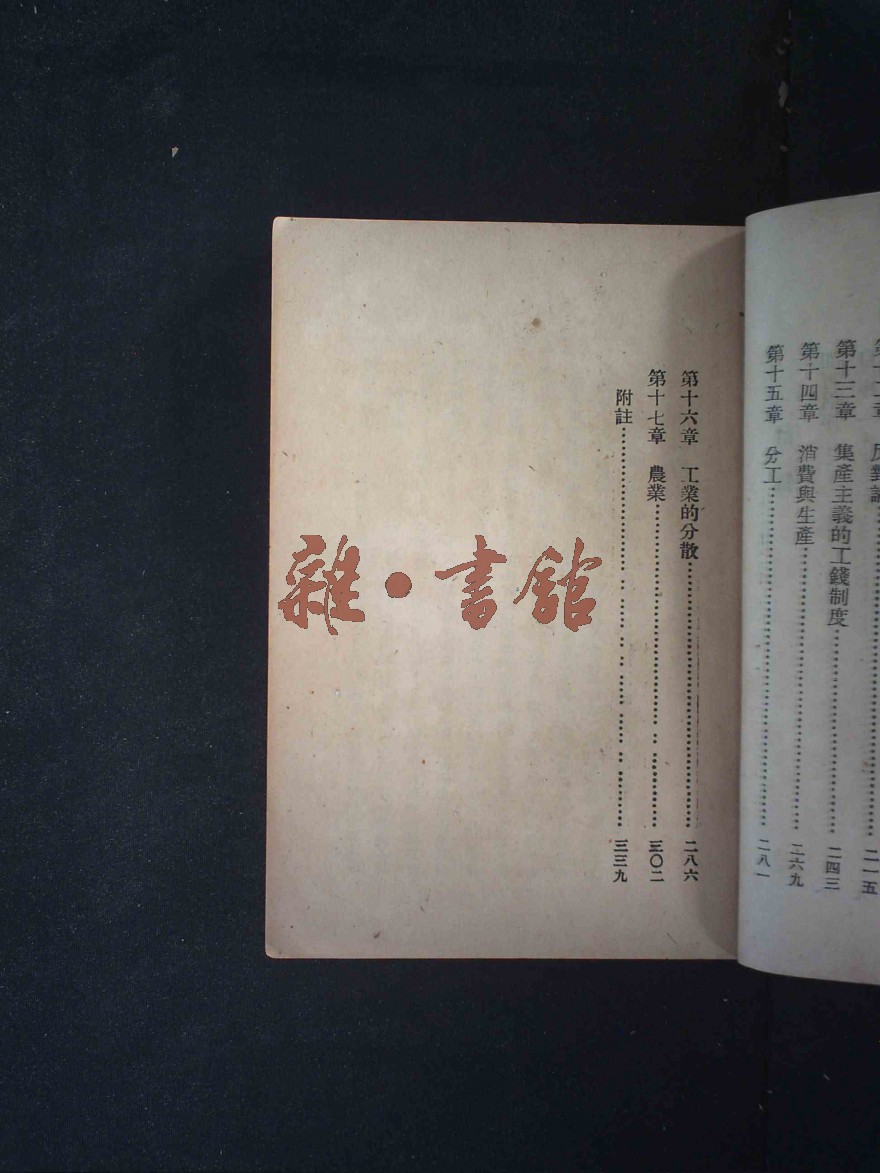 反對論……二一五
第十三章 集產主義的工錢制度……二四三
第十四章 消費與生產……二六九
第十五章 分工……二八一
第十六章 工業的分散……二八六
第十七章 農業……三〇二
附註……三三九
雜·書館